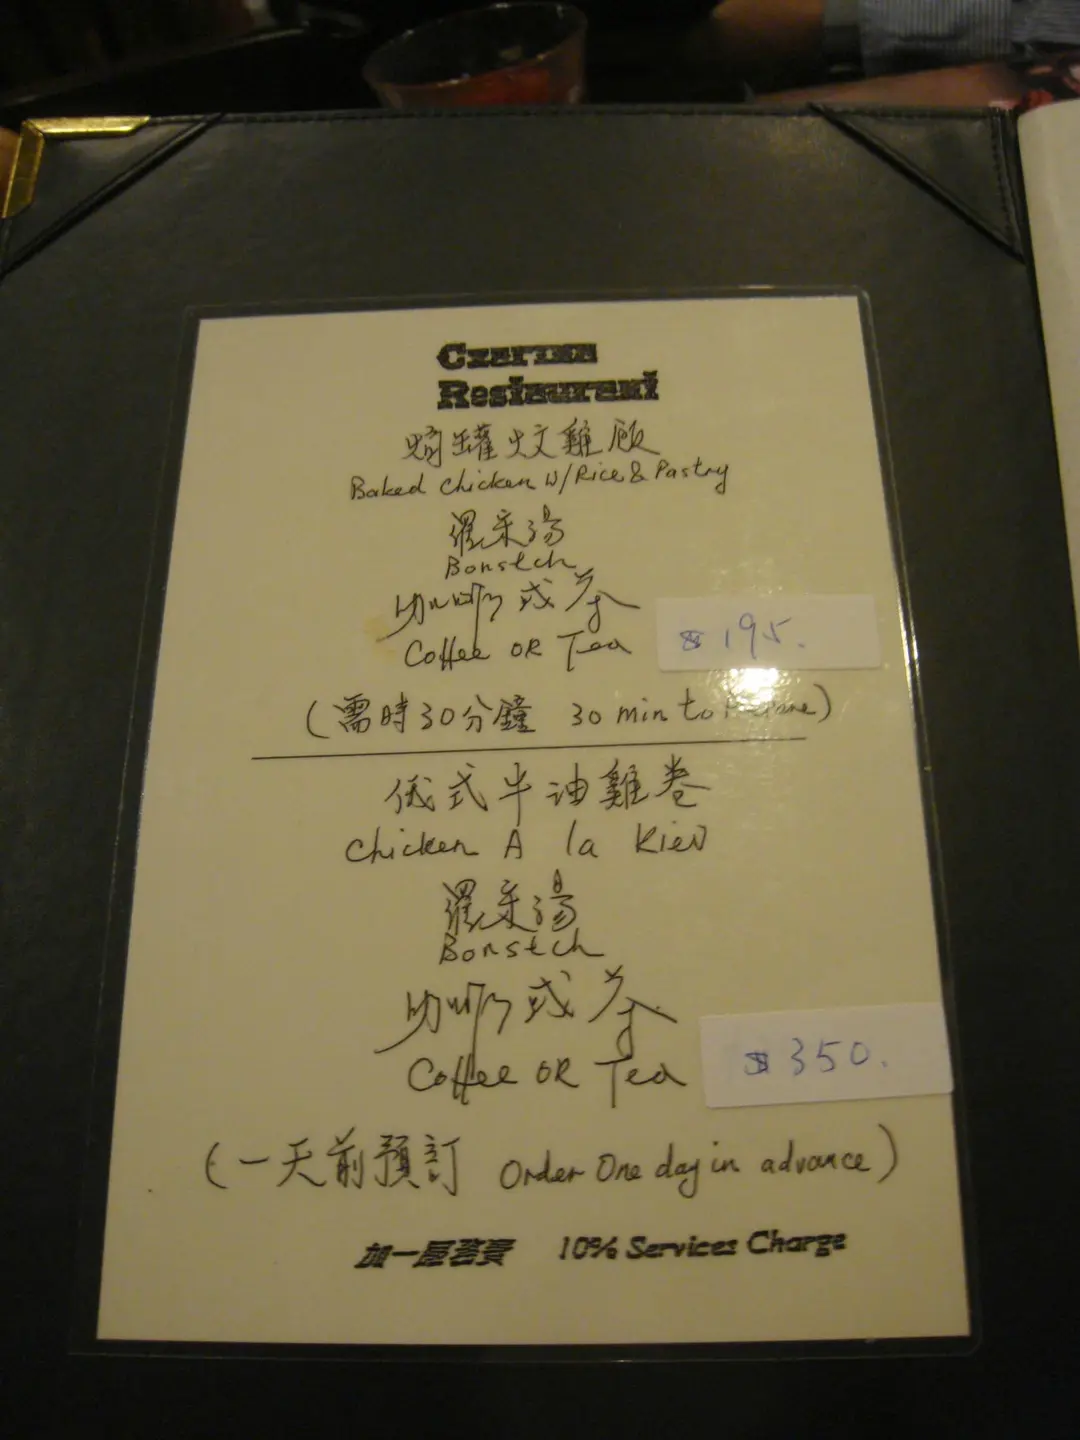 Czarina
Restaurant
焗罐炆雞飯
Baked Chicken W/Rice & Pastry
羅宋湯
Borstch
咖啡或茶
Coffee OR Tea
$195.
(需時30分鐘 30 min to Prepare)
俄式牛油雞卷
Chicken A la Kiev
羅宋湯
Borstch
咖啡或茶
Coffee OR Tea
$350.
(一天前預訂 Order One day in advance)
加一服務費 10% Services Charge